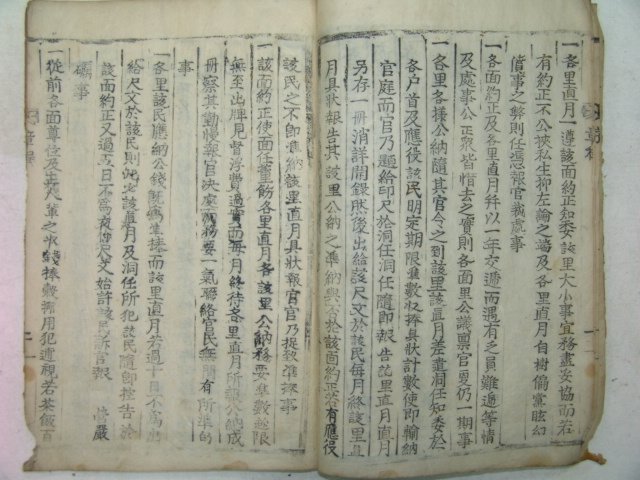 一各里直月一遵該面約正知委該里大小事宜務盡妥協而若
有約正不公挾私生抑左袒之端及各里直月自樹偏黨眩幻
僭事之弊則任憑報官裁處事
一各面約正及各里直月幷以一年交遞而遇有多員難遞等情
及處事公正衆皆惜去之實則各面里公議禀官更仍一期事
一各里各樣公納隨其官令之到該里該直月差遣洞任知委於
各户首及應役該民明定期限準數收捧具狀計數使即輸納
官庭而官乃題給印尺於洞任洞任隨即報告該里直月直月
另存一冊消詳開録然後出給該尺文於該民每月終該里直
月具狀報告其該里公納之準納與否於該面約正若有應役
該民之不即準納該里直月具狀報官官乃捉致準捧事
一該面約正使面任董飭各里直月各該里公納務要準數趂限
無至出牌見督浮費過實而每月終待各里直月所報公納成
冊察其勤慢禀官決處而務要一氣聯絡官民無間有所準的
事
一各里該民應納公錢既爲準捧而該里直月若過十日不爲出
給尺文於該民則此該直月及洞任所犯該民隨即控告於
該面約正又過五日不爲出尺文始許該民訴官報 嚴
礪事
一從前各面尊位及輩之收錢捧穀挪用犯逋視若茶飯百